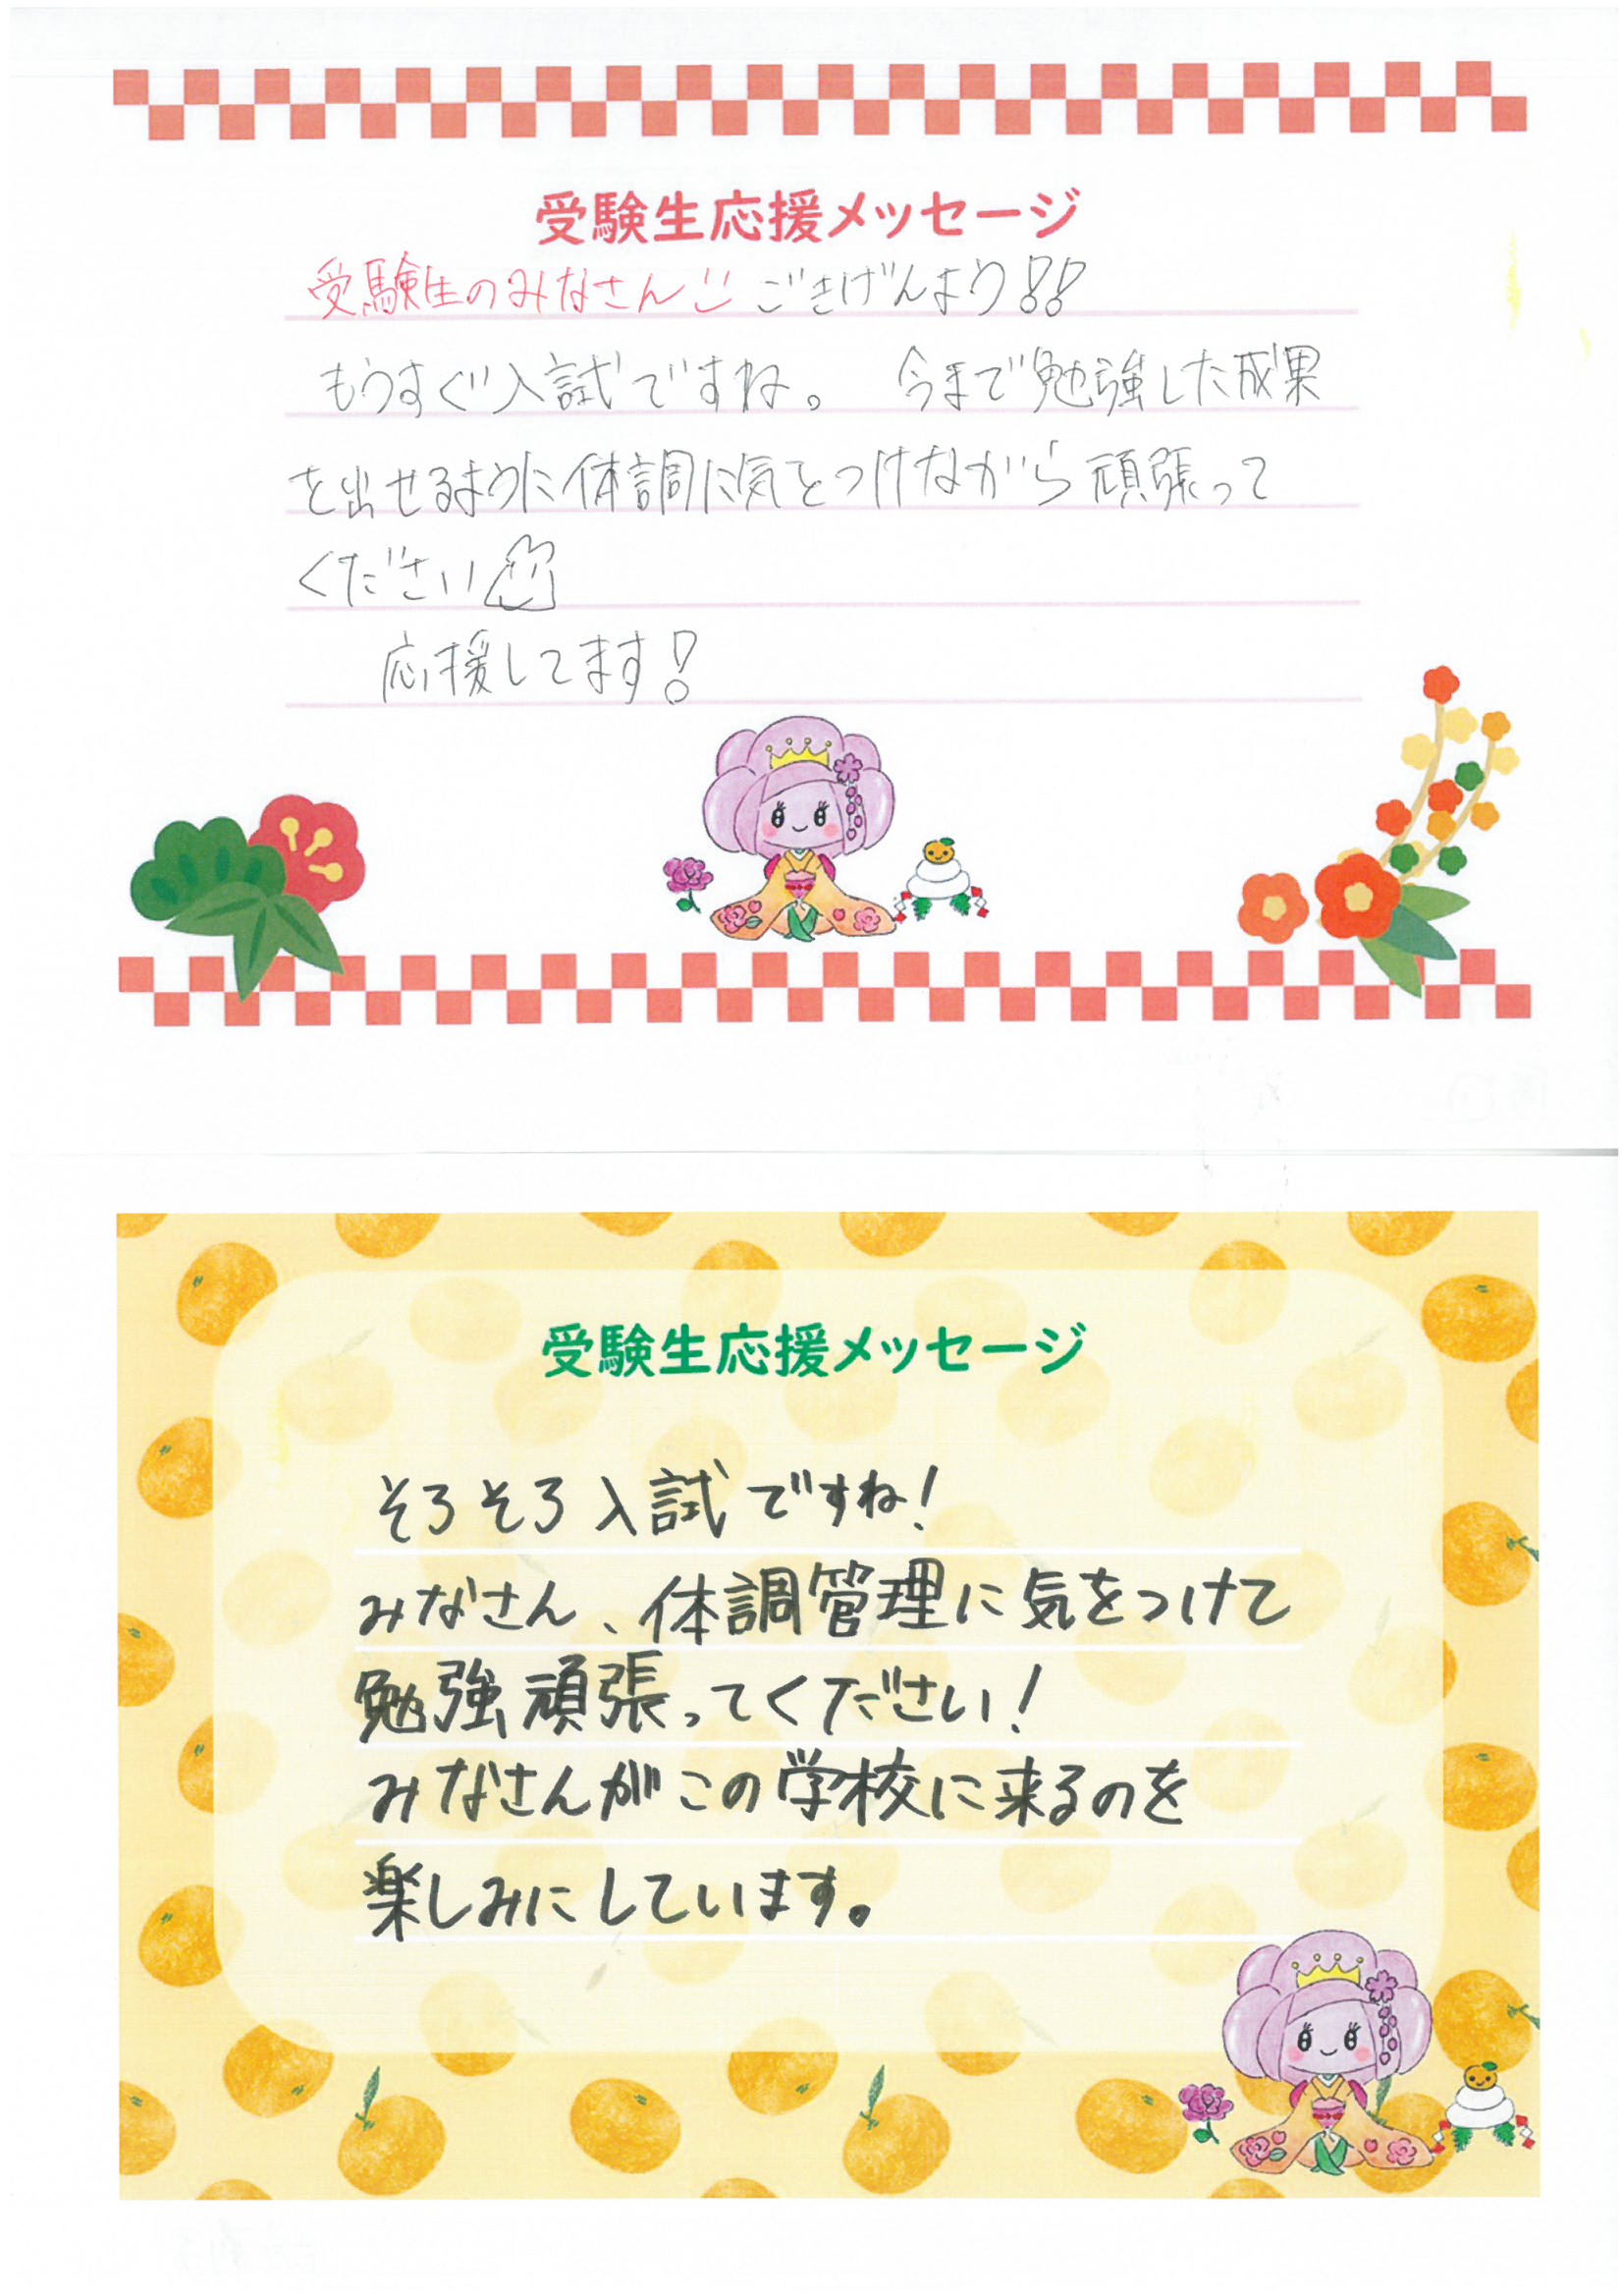 受験生応援メッセージ
受験生のみなさん ごきげんよう!!
もうすぐ入試ですね。 今まで勉強した成果
を出せるように体調に気をつけながら頑張って
ください
応援してます!
受験生応援メッセージ
そろそろ入試ですね!
みなさん、体調管理に気をつけて
勉強頑張ってください!
みなさんがこの学校に来るのを
楽しみにしています。